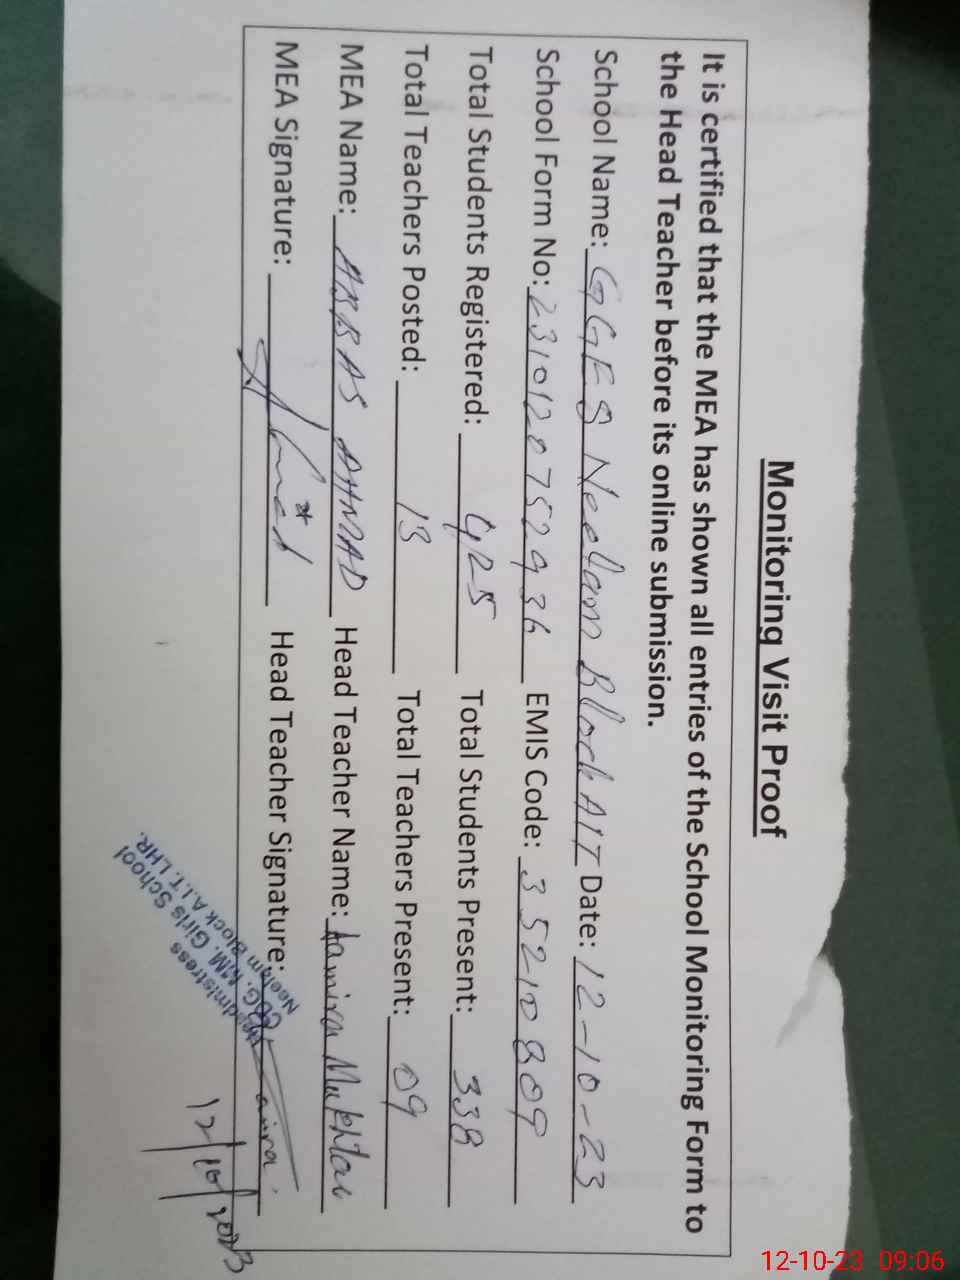 Monitoring Visit Proof
It is certified that the MEA has shown all entries of the School Monitoring Form to
the Head Teacher before its online submission.
School Name: GGES Neelam Block AIT Date: 12-10-23
School Form No: 2310120752936 EMIS Code: 35210809
Total Students Registered: 425 Total Students Present: 338
Total Teachers Posted: 13 Total Teachers Present: 09
MEA Name: ABBAS AHMAD Head Teacher Name: Mukhtar
MEA Signature: Head Teacher Signature:
Headmistress
CDG. M.M. Girls School
Neelam Block A.I.T. LHR.
12/10/2023
12-10-23 09:06